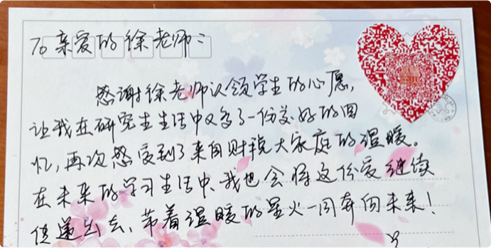 To 亲爱的徐老师：
感谢徐老师认领学生的心愿，
让我在研究生生活中又多了一份美好的回
忆，再次感受到了来自财税大家庭的温暖。
在未来的学习生活中，我也会将这份爱继续
传递出去，带着温暖的星火一同奔向未来！